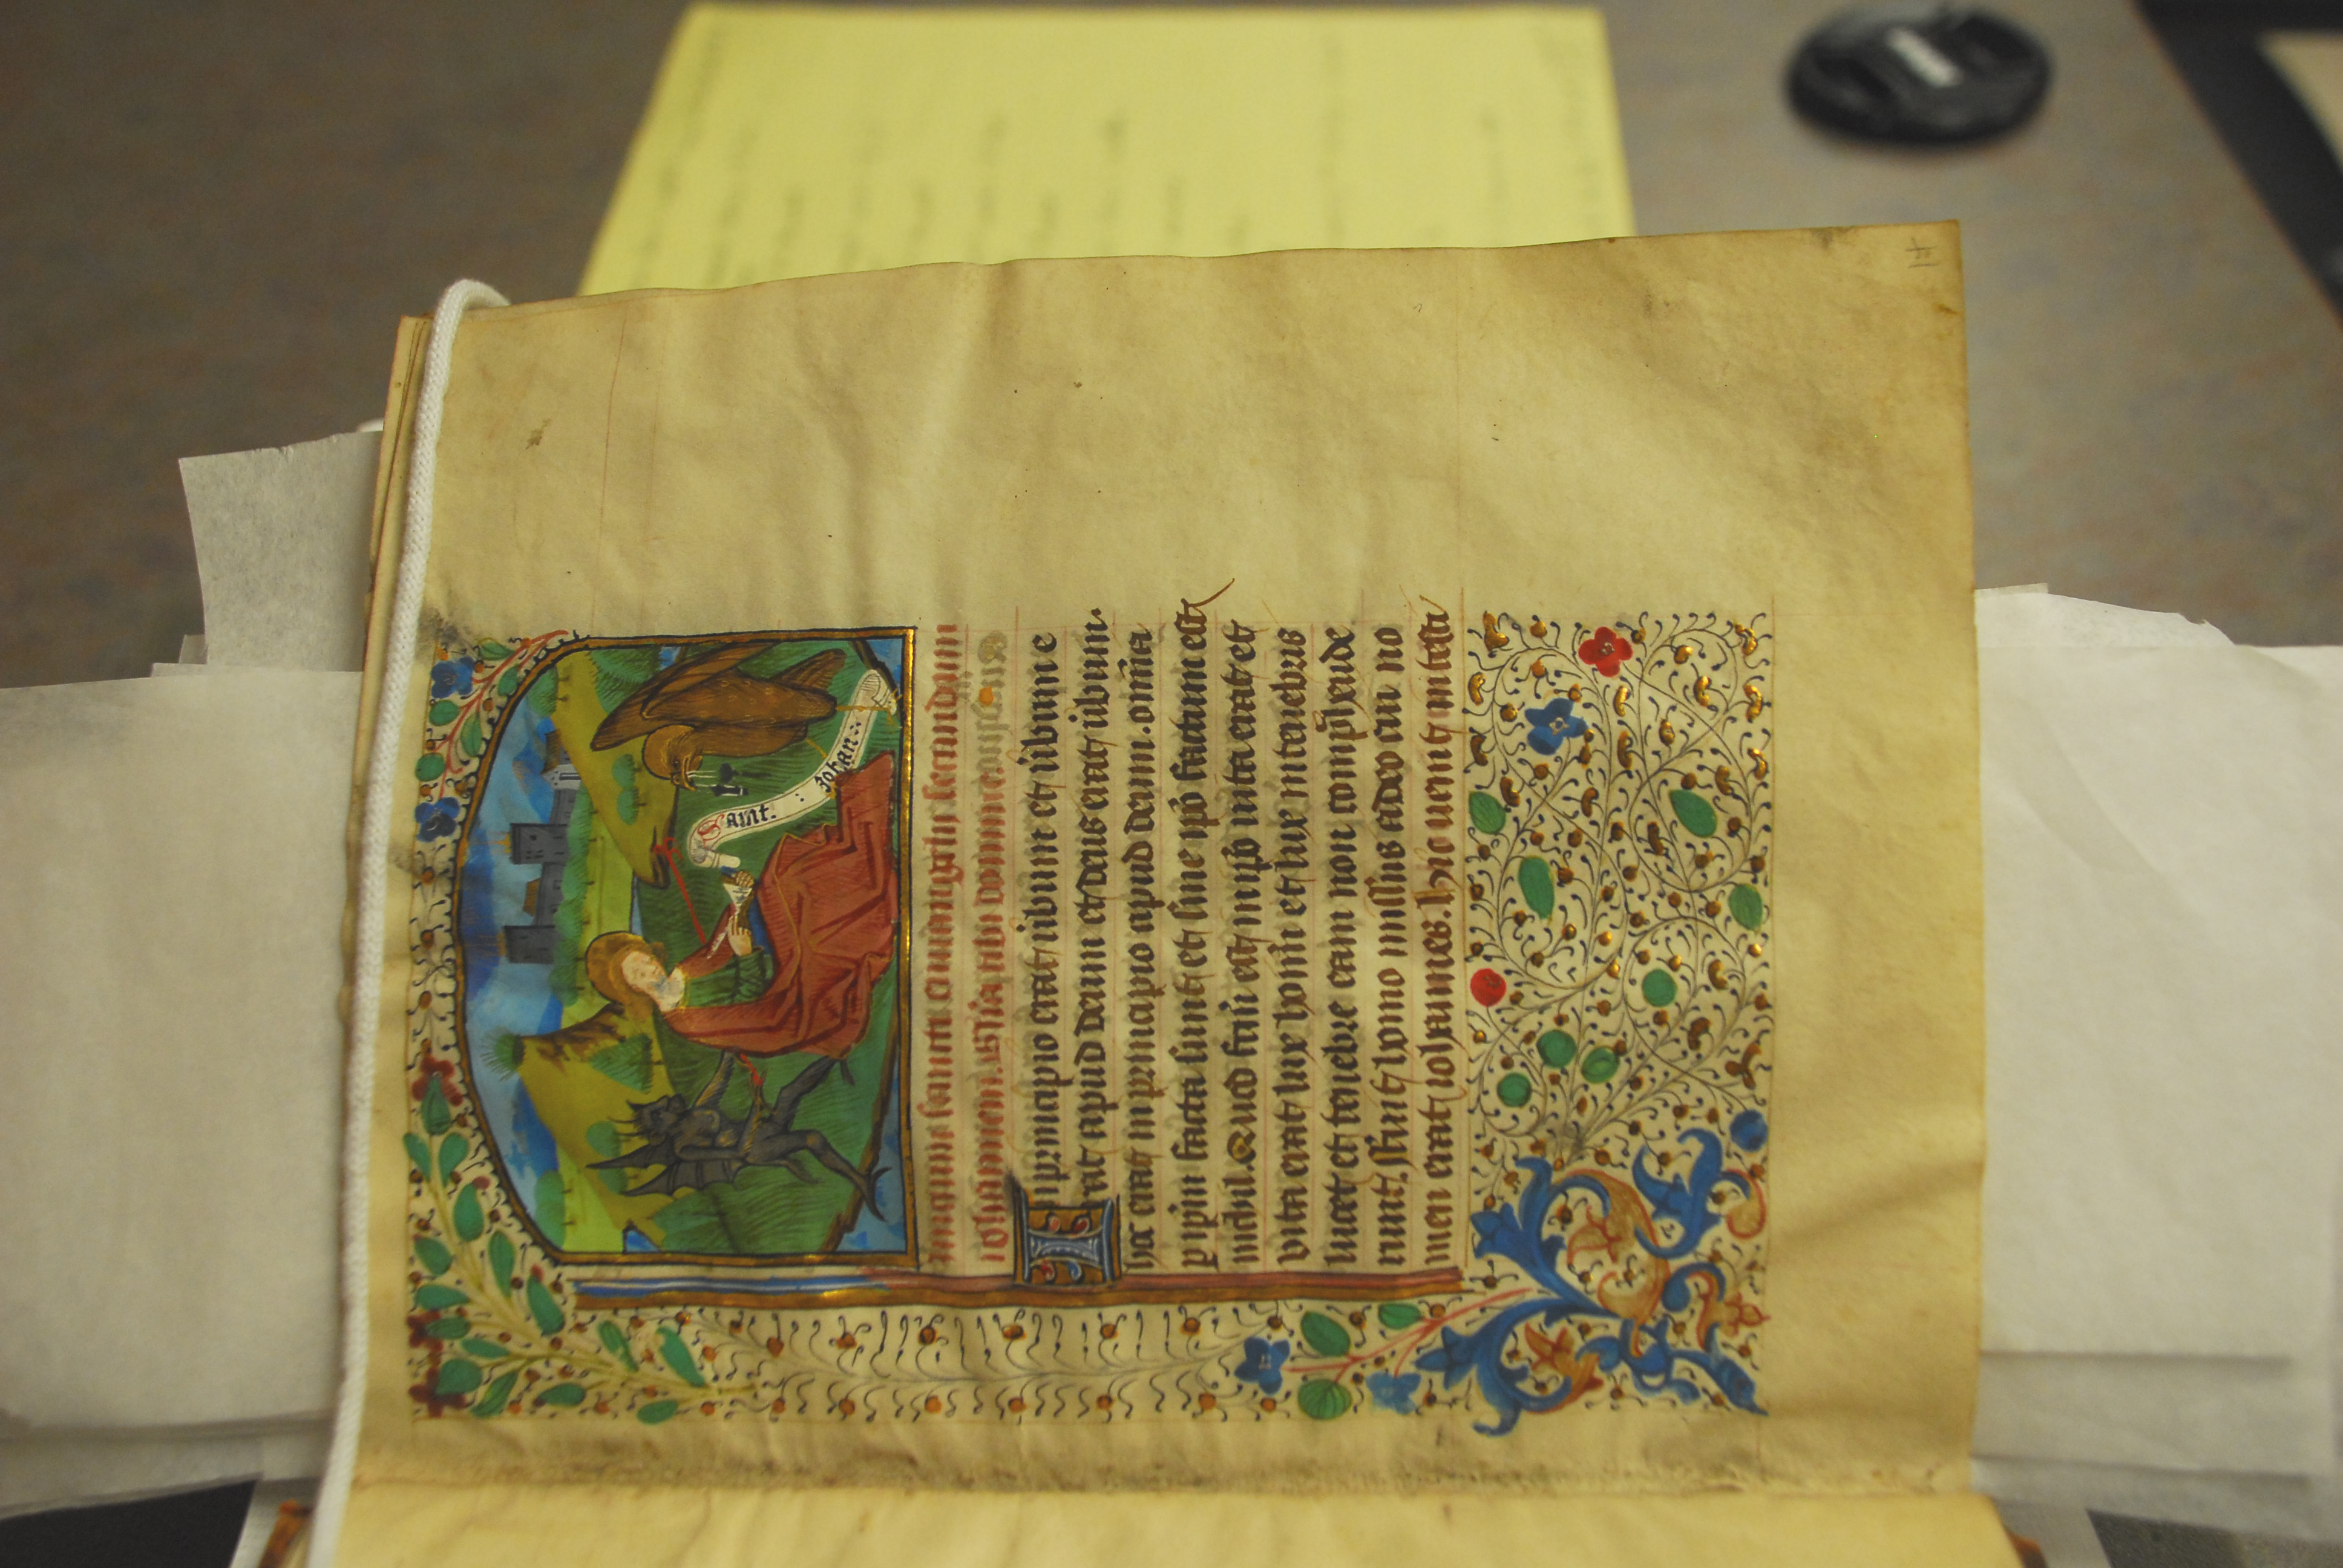 Saint. : Iohan:
Inicium sancti euuangelii secundum
iohannem. Glia tibi domine.
In principio erat ūbum et ūbum e
rat apud deum et deus erat ūbum.
hoc erat in principio apud deum. omīa
p ipm̄ facta sunt et sine ipō factum est
nichil. Quod fc̄m est in ipō uita erat et
vita erat lux hoīm et lux in tenebris
lucet et tenebre eam non comp̄hende
runt. ffuit homo missus a deo cui no
men erat iohannes. hic uenit in testi